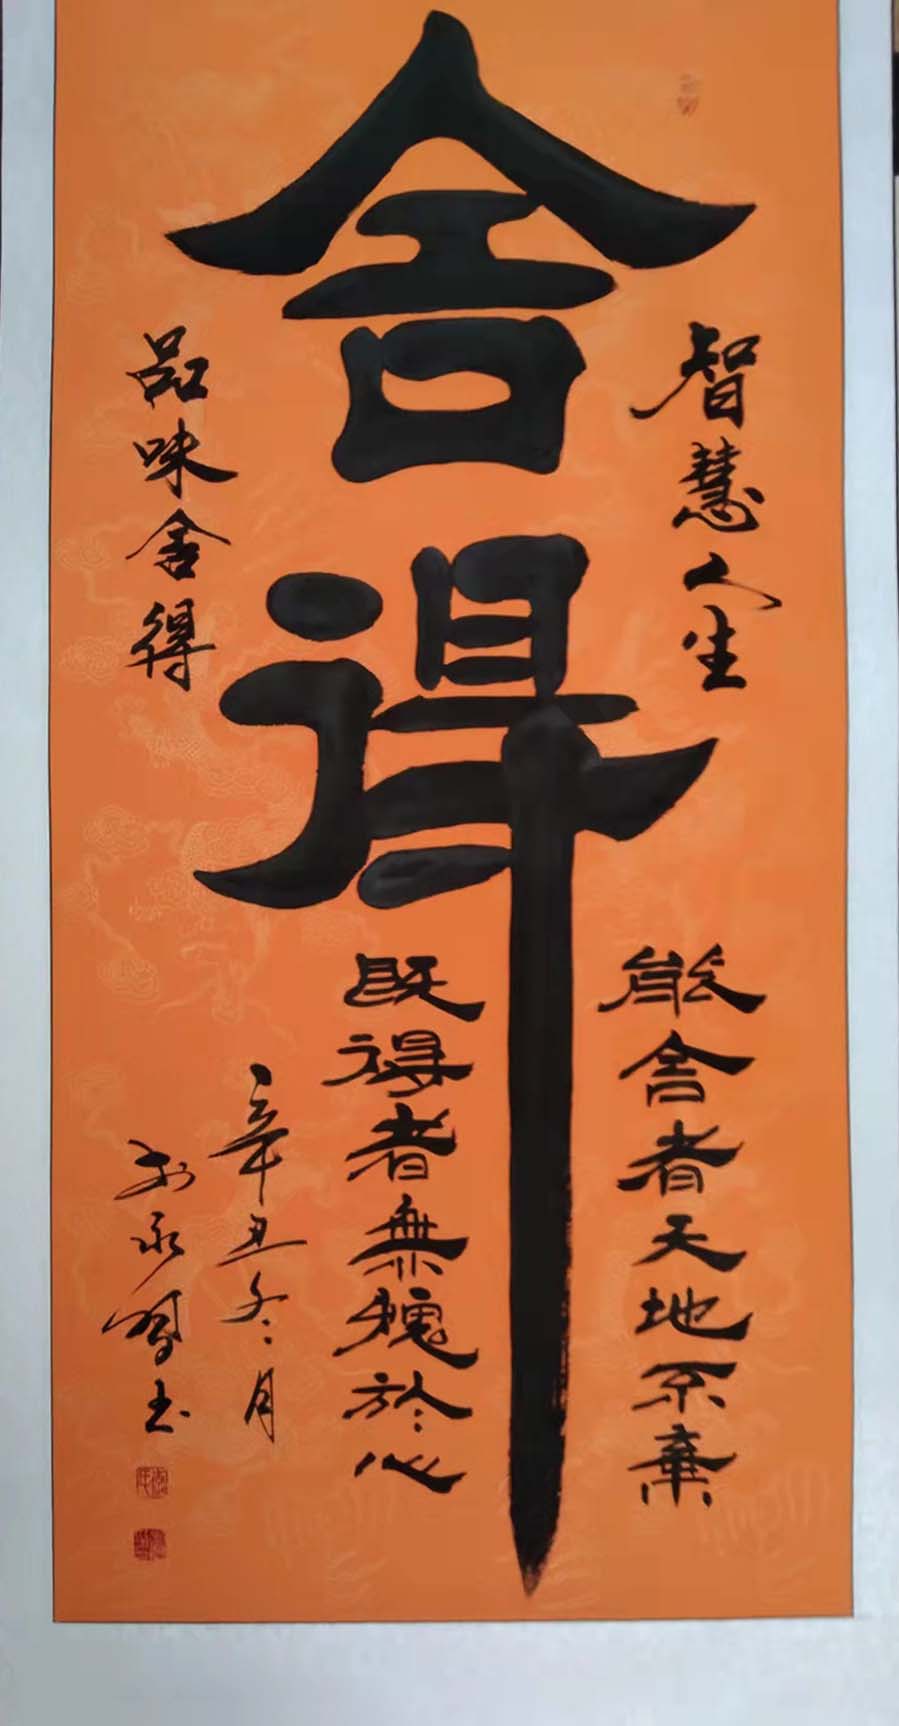 舍得
智慧人生
品味舍得
能舍者天地不棄
既得者無愧於心
辛丑冬月
永
书